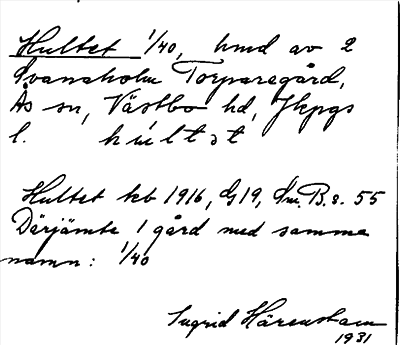 Hultet 1/40, hmd av 2
Svanaholm Torparegård,
Ås sn, Västbo hd, Jkpgs
l. hultət
Hultet kb 1916, G19, Sm. B. s. 55
Därjämte 1 gård med samma
namn: 1/40
Ingrid Härenstam
1931